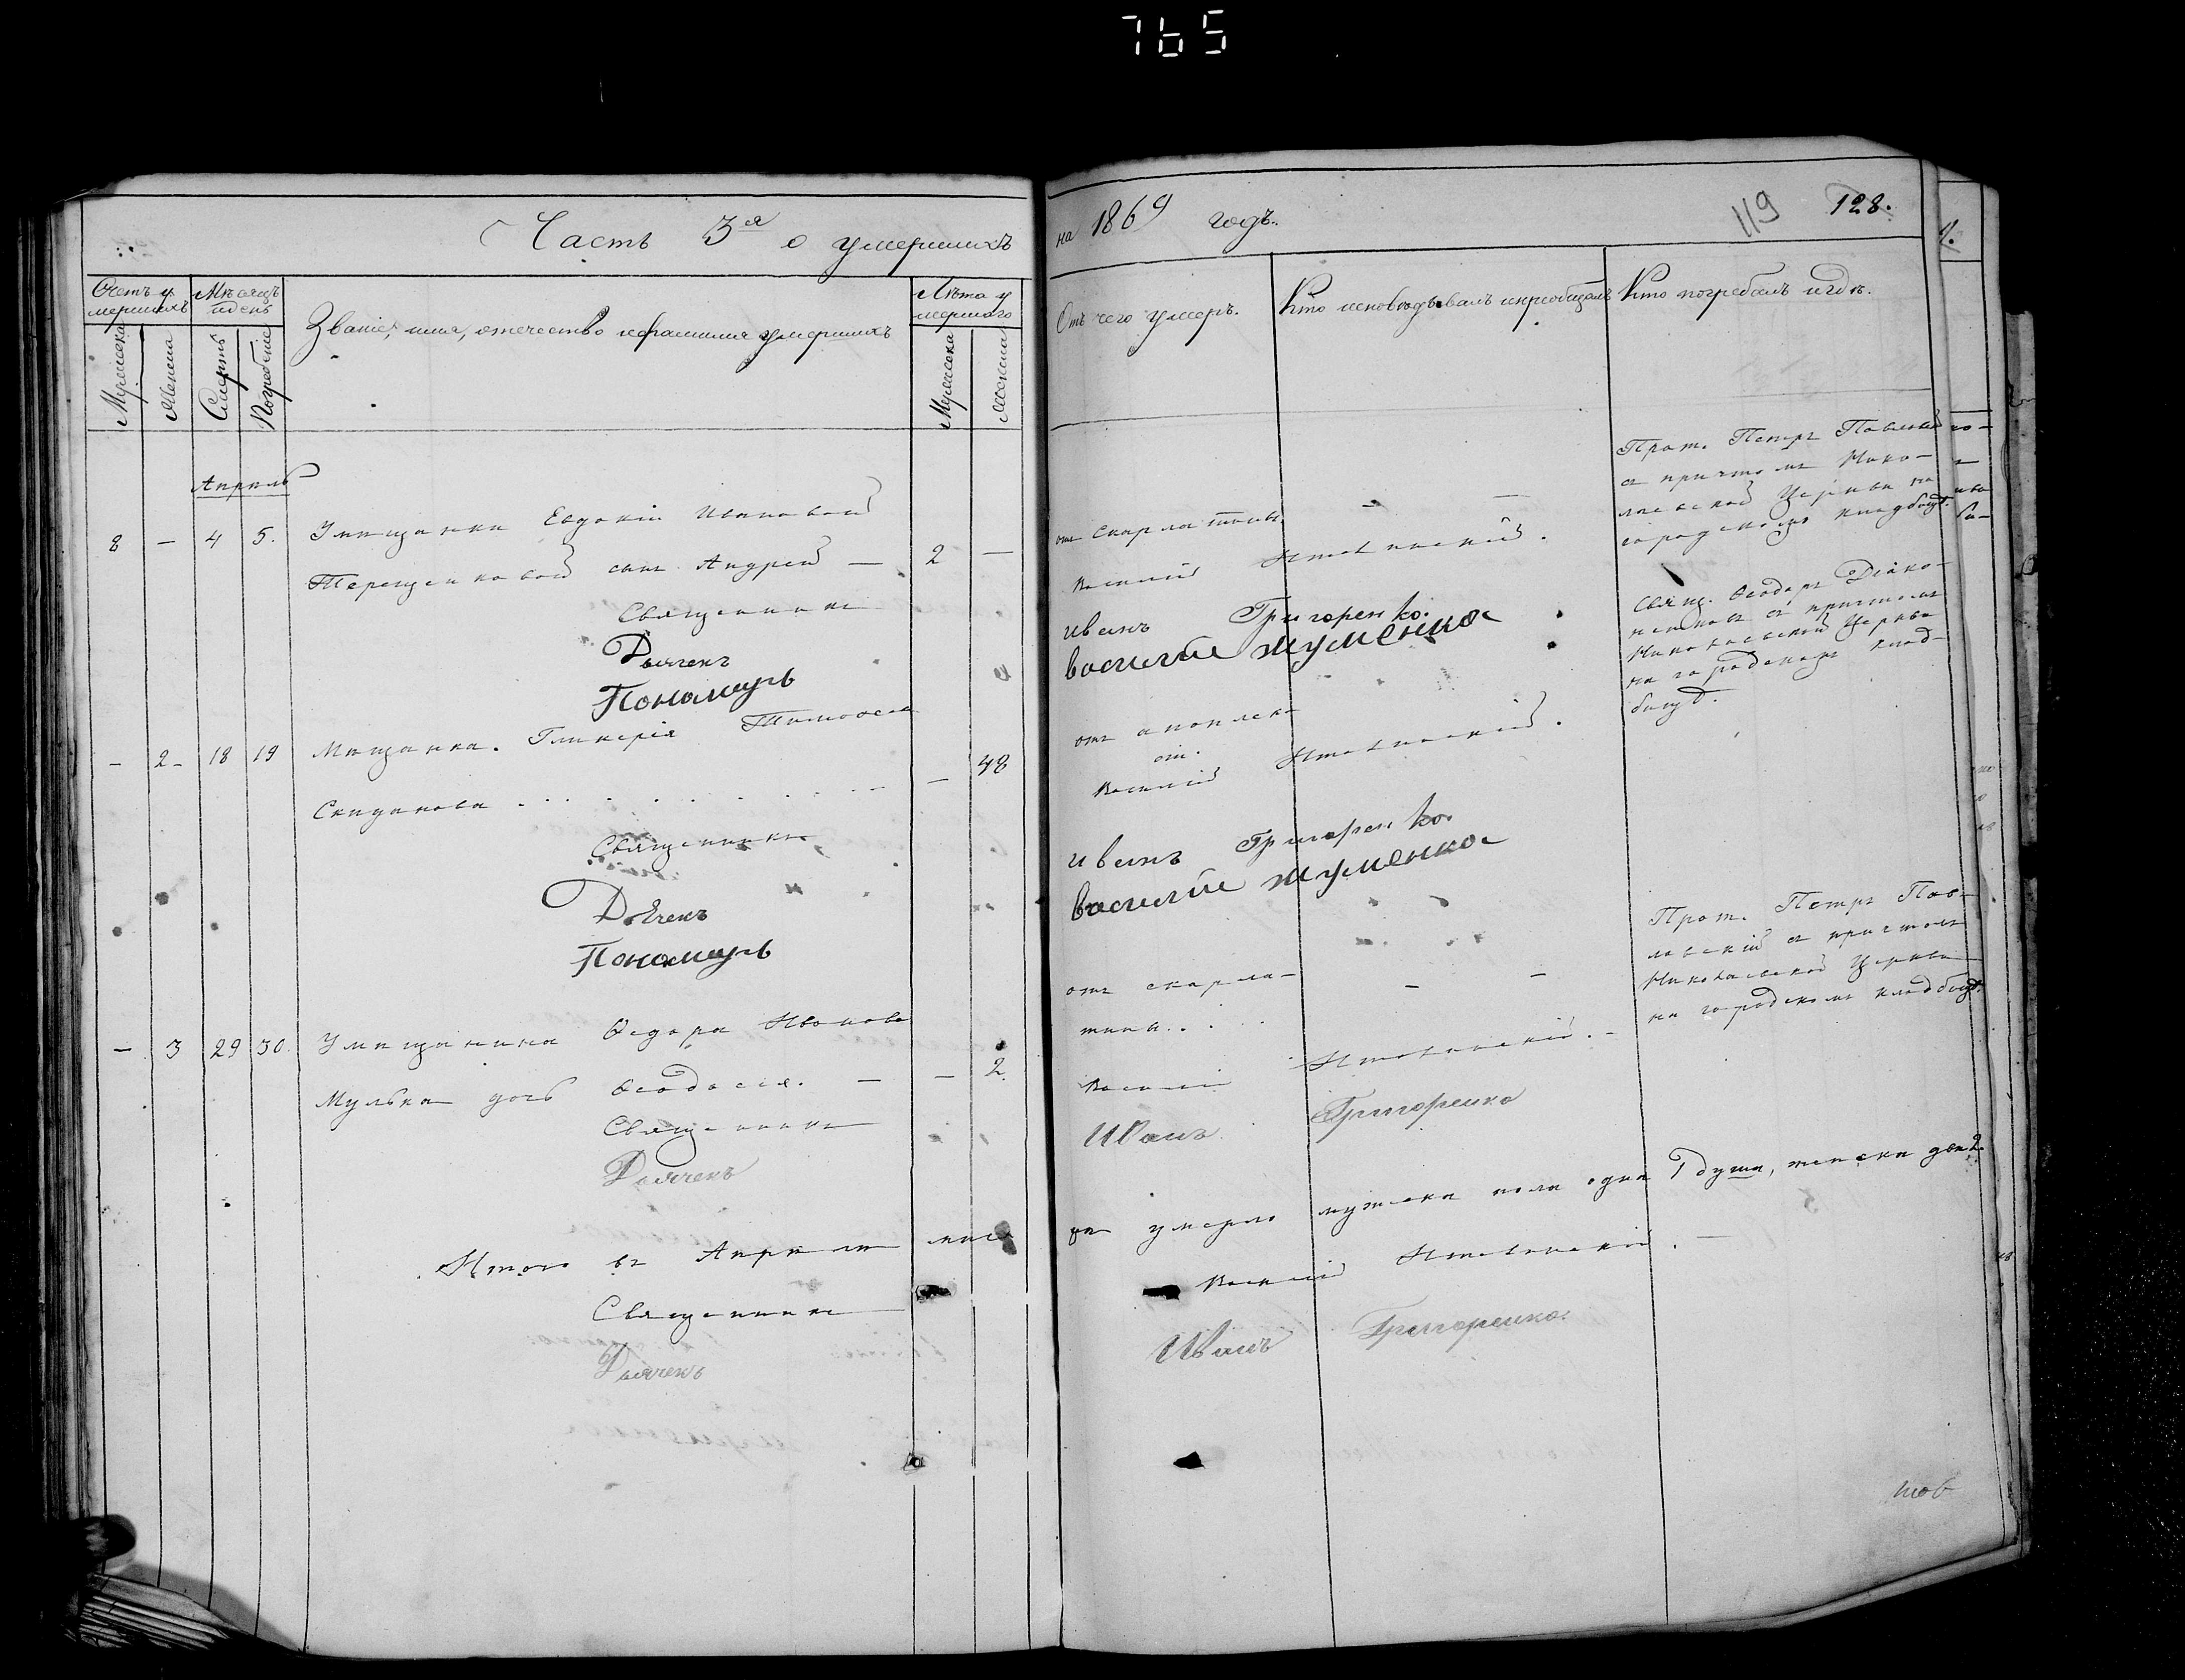 765
Часть 3я о умершихъ
на 1869 годъ.
119 128.
Счетъ умершихъ
Мѣсяцъ и день
Званіе, имя, отечество и фамилия умершихъ
Лѣта умершого
Мужеска
Женска
Смерть
Погребеніе
Мужеска
Женска
Отъ чего умеръ.
Кто исповѣдывалъ и приобщалъ
Кто погребалъ и гдѣ.
Апрѣль
8 — 4 5. У мѣщанки Евдокіи Ивановой
Терещенковой сынъ Андрей — 2 —
отъ Скарлатины — —
Прот. Петръ Павловскій
съ причтомъ Нико-
лаевской Церкви на
городскомъ кладбищѣ.
Священникъ Василій
Дьячекъ Иванъ Григоренко.
Пономарь Василие Жуменко
— 2 — 18 19 Мѣщанка. Гликерія Тимоѳеева
Скиданова . . . . . . . — 48
отъ апоплек-
Свящ. Ѳеодоръ Діако-
съ причтомъ
Николаевской Церкви
на городскомъ клад-
бищѣ.
Священникъ Василій
Дьячекъ Иванъ Григоренко.
Пономарь Василие Жуменко
— 3 29 30. У мѣщанина Ѳедора Иванова
Мулька дочь Ѳеодосія. — — 2.
отъ скарла-
тины. . . — —
Прот. Петръ Пав-
ловскій съ причтомъ
Николаевской Церкви
на городскомъ кладбищѣ.
Священникъ Василій
Дьячекъ Иванъ Григоренко
Итого въ Апрѣлѣ мѣся
цѣ умерло мужска пола одна 1 душа, женска двѣ 2.
Священникъ Василій
Дьячекъ Иванъ Григоренко.